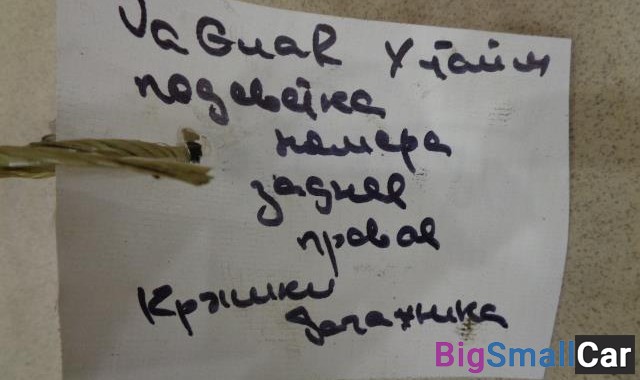 JaGuaR Х тайп
подсветка
намера
заднее
правое
Крышки
багажника
BigSmallCar